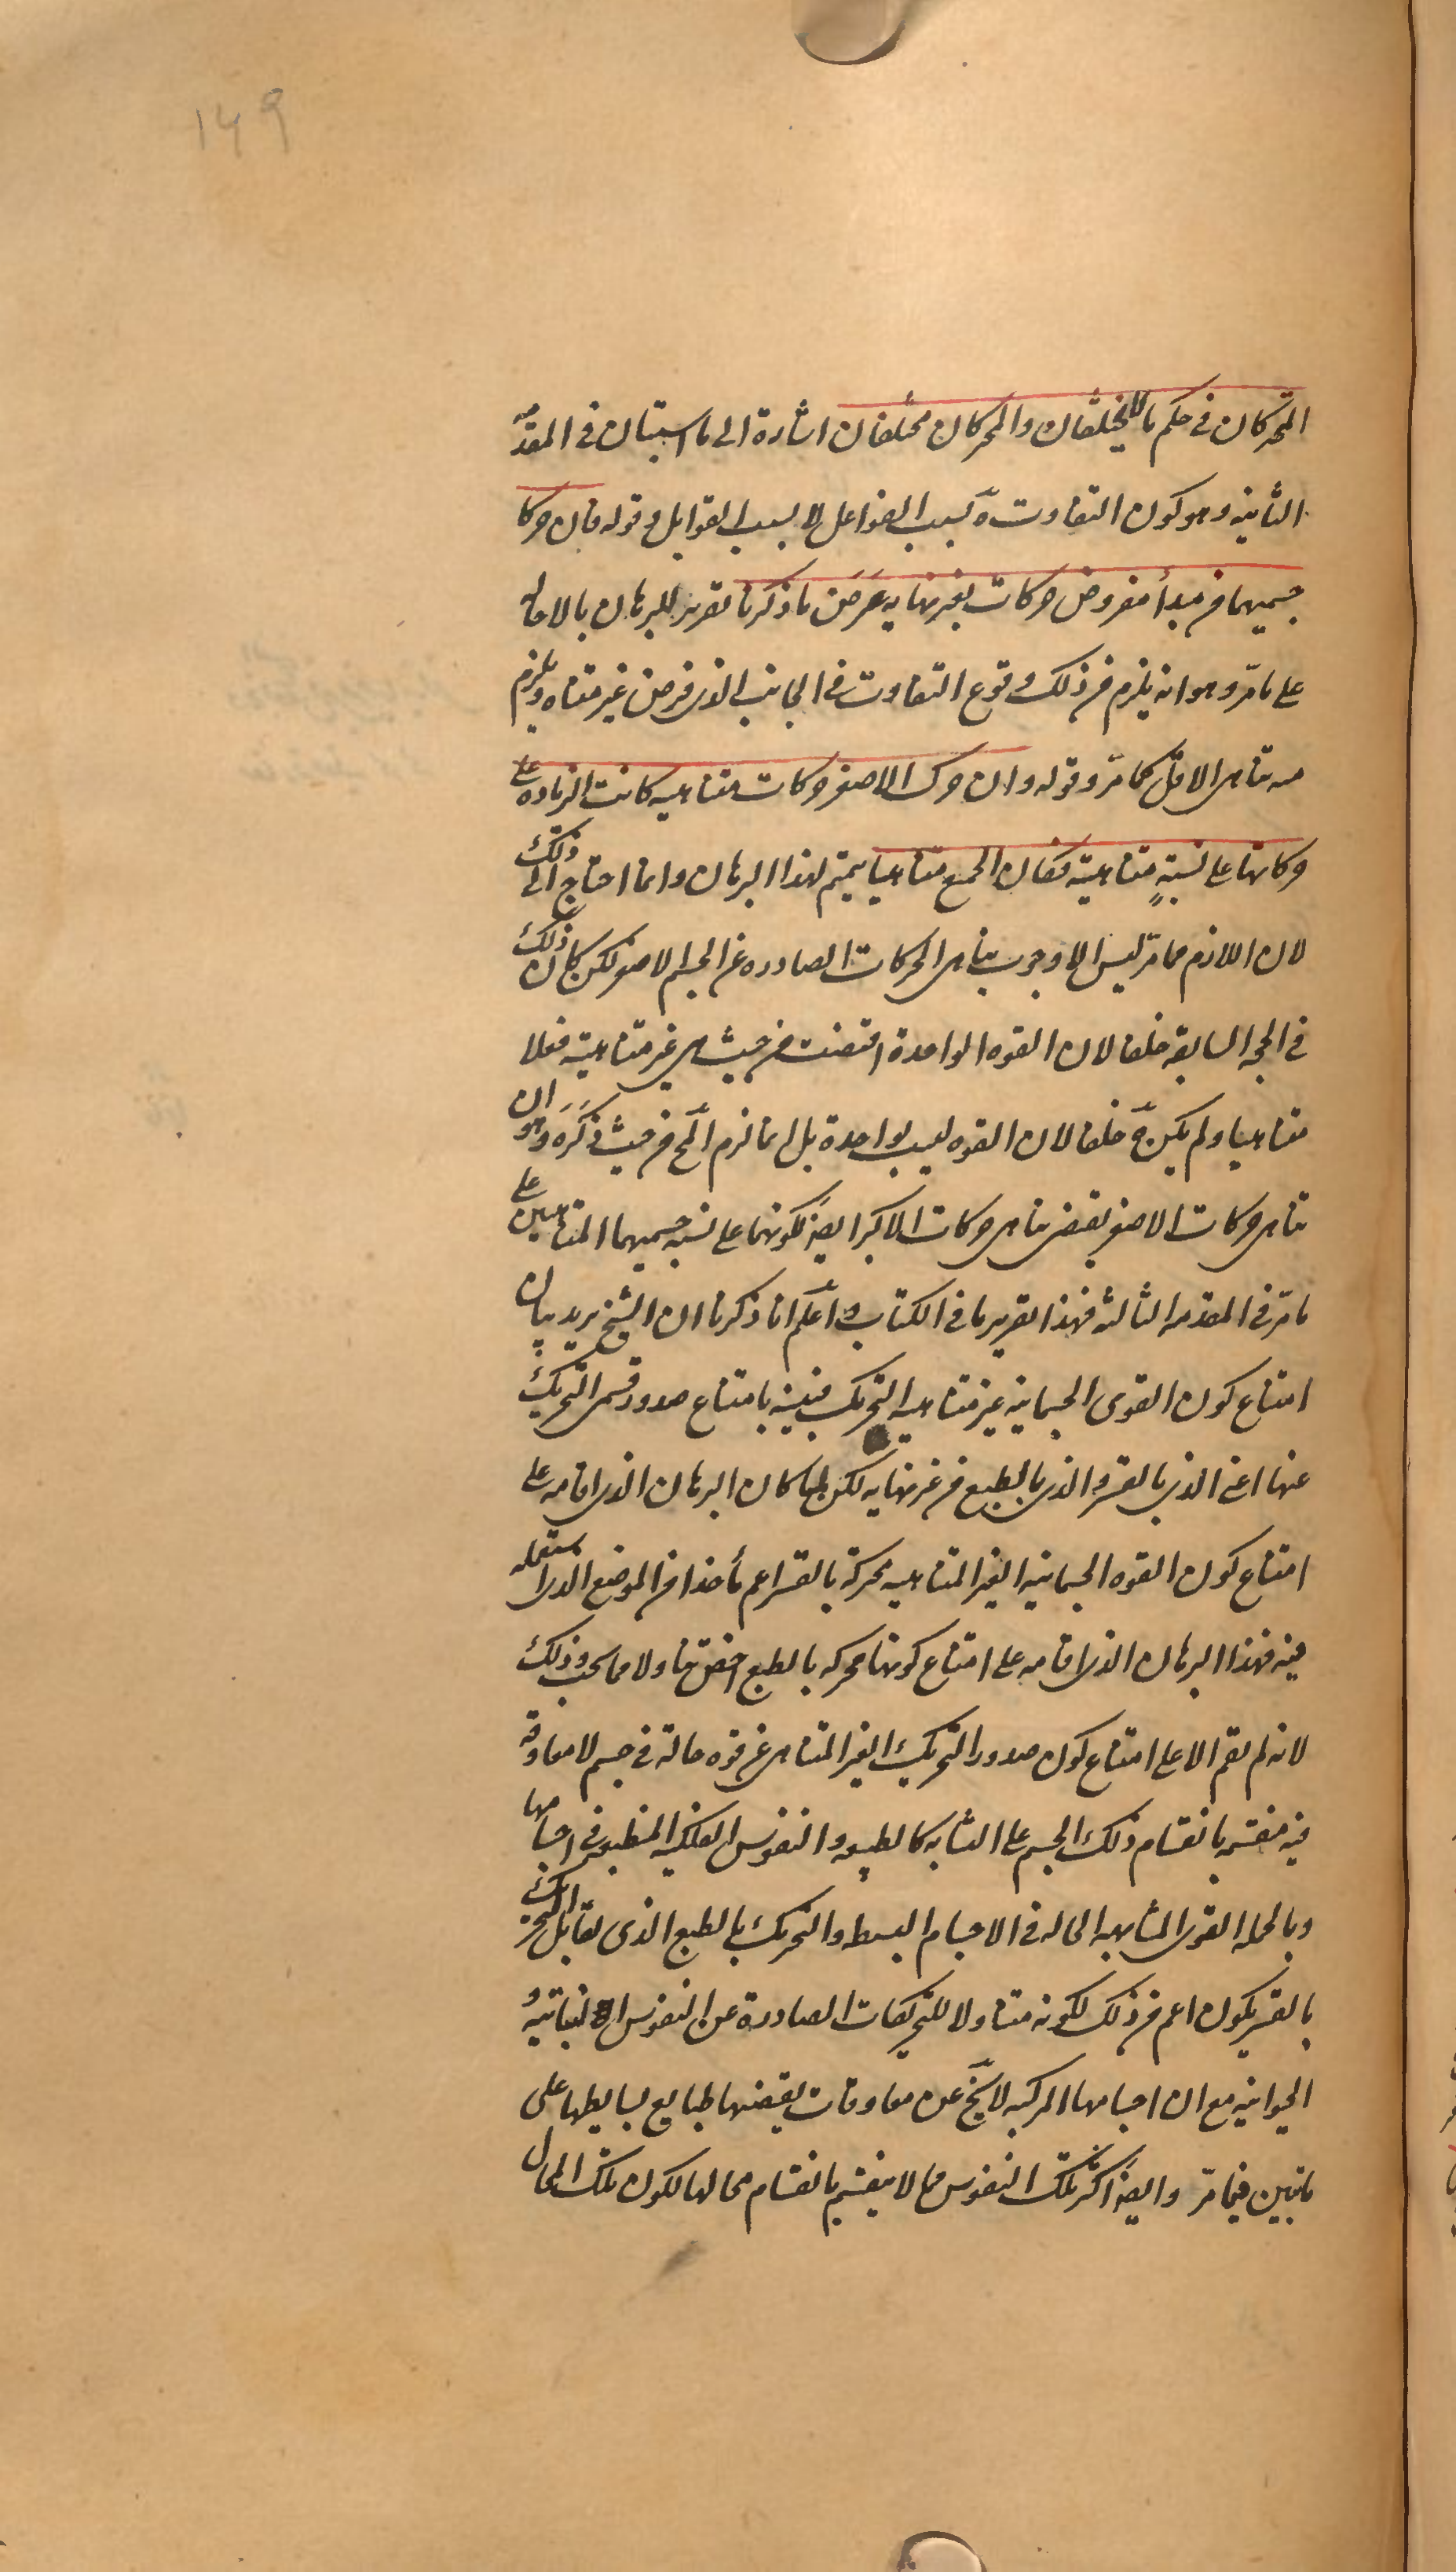 ١٤٩
المتحركان في حكم ما لا يختلفان والمحركان مختلفان اشارة الى ما استبان في المقدمة
الثانية وهو كون التفاوت ثمّ بسبب الفواعل لا بسبب القوابل وقوله فان حركا
جسميهما من مبدأ مفروض حركات بغير نهاية عرض ما ذكرنا تقرير للبرهان بالاحالة
على ما مرّ وهو انه يلزم من ذلك وقوع التفاوت في الجانب الذى فرض غير متناه ويلزم
منه تناهى الاقل كما مرّ وقوله وان حرك الاصغر حركات متناهيه كانت الزيادة على
حركاتها على نسبةٍ متناهية فكان الجميع متناهيا تتميم لهذا البرهان وانما احتاج الى ذلك
لان اللازم مما مرّ ليس الا وجوب تناهى الحركات الصادره عن الجسم الاصغر لكن كان ذلك
في الحجه السابقة خلفا لان القوه الواحدة اقتضت من حيث هى غير متناهية فعلا
متناهيا ولم يكن ثمّ خلفا لان القوه ليست بواحدة بل انما لزم المح من حيث ذكَره وهو ان
تناهى حركات الاصغر يقتضى تناهى حركات الاكبر ايضا لكونهما على نسبة جسميهما المتناهيين على
ما مرّ في المقدمه الثالثه فهذا تقرير ما في الكتاب واعلم انا ذكرنا ان الشيخ يريد بيان
امتناع كون القوى الجسمانيه غير متناهيه التحريك فبينه بامتناع صدور قسمى التحريك
عنها اعنى الذى بالقسر والذى بالطبع من غير نهايه لكن لما كان البرهان الذى اقامه على
امتناع كون القوه الجسمانيه الغير المتناهيه محركة بالقسر اعم مأخذا من الموضع الذى استعمله
فيه فهذا البرهان الذى اقامه على امتناع كونها محركه بالطبع اخص تناولا مما يجب وذلك
لانه لم يقم الا على امتناع كون صدور التحريك الغير المتناهى عن قوه حالة في جسم لا معاوقة
فيه منقسمه بانقسام ذلك الجسم على التشابه كالطبيعه والنفوس الفلكية المنطبعة في اجسامها
وبالجمله القوى المتشابهه الحاله في الاجسام البسيطه والتحريك بالطبع الذى يقابل التحريك
بالقسر يكون اعم من ذلك لكونه متناولا للتحريكات الصادرة عن النفوس النباتية و
الحيوانيه مع ان اجسامها المركبه لا يخ عن معاوقات يقتضيها طبايع بسايطها على
ما تبين فيما مرّ وايضا اكثر تلك النفوس مما لا ينقسم بانقسام محالها لكون تلك المحال